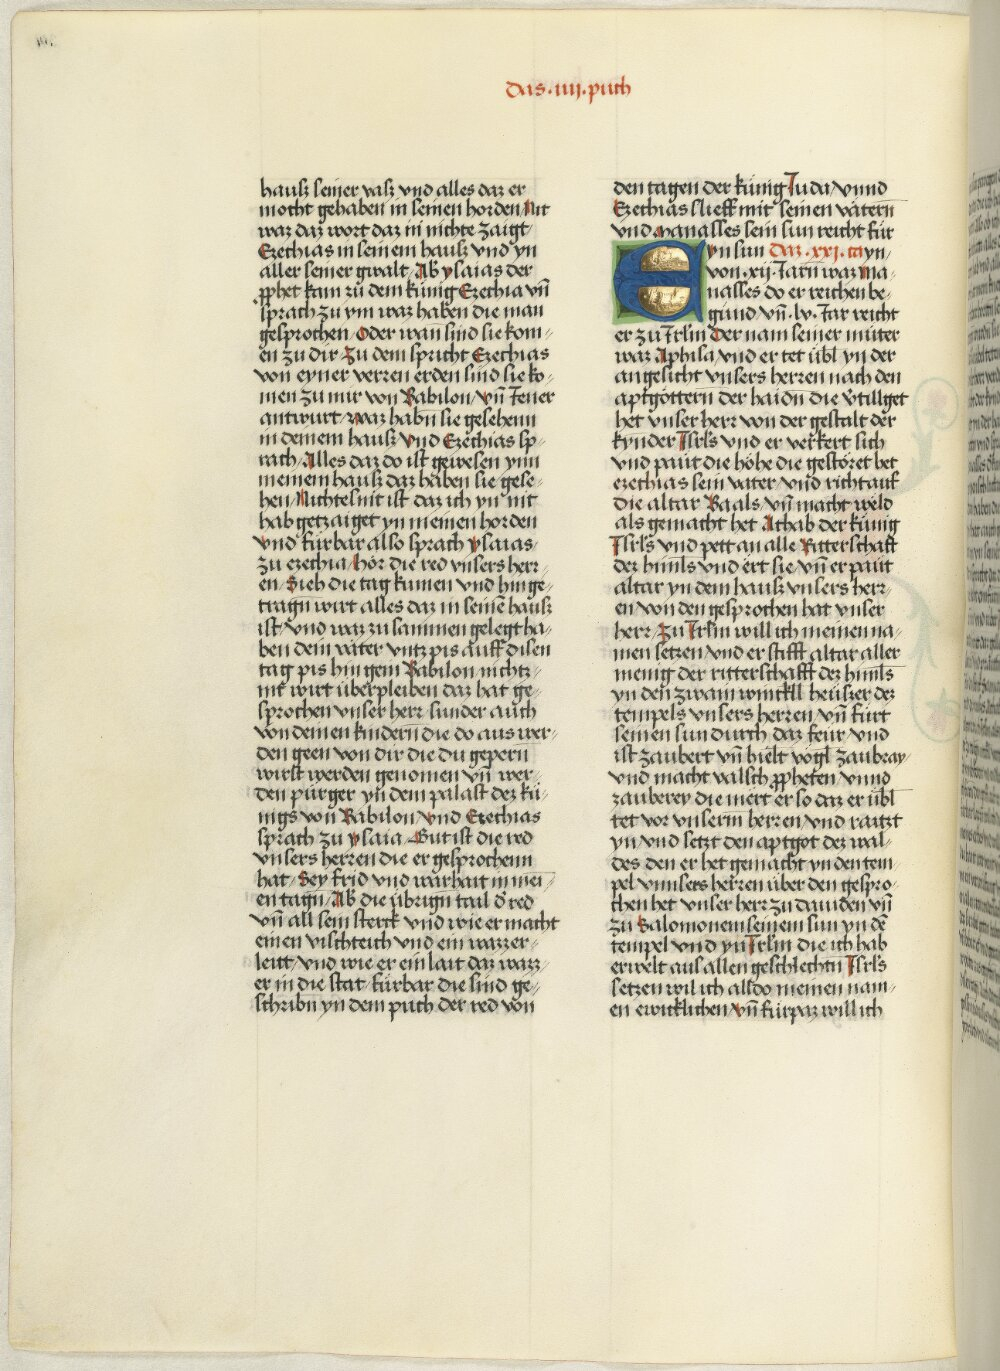 das · iiij · puch
hausz seiner vasz vnd alles daz er
mocht gehaben in seinen horden / Nit
waz daz wort daz in nichte zaigt
Ezechias in seinem hausz vnd yn
aller seiner gwalt / Ab ysaias der
pphet kam zů dem künig Ezechia vn̄
sprach zu ym waz haben die man
gesprochen / Oder wan̄ sind sie kom-
en zu dir Zu dem spricht Ezechias
von eyner verren erden sind sie ko-
men zu mir von Babilon / vn̄ Jener
antwurt / waz habn̄ sie gesehenn
in deinem hausz vnd Ezechias sp-
rach / Alles daz do ist gewesen ynn
meinem hausz daz haben sie gese-
hen / Nichtesnit ist daz ich yn̄ nit
hab getzaiget yn meinen horden
vnd fürbar also sprach ysaias /
zu ezechia / hör die red vnsers herr-
en / Sieh die tag kumen vnd hinge-
tragn̄ wirt alles daz in seinē hausz
ist / vnd waz zu sammen gelegt ha-
ben dein väter vntz pis auff disen
tag pis hin gein Babilon nichtz-
nit wirt überpleiben daz hat ge-
sprochen vnser herr sunder auch
von deinen kindern̄ die do aus wer-
den geen von dir die du gepern
wirst werden genomen vn̄ wer-
den pürger yn̄ dem palast dez kü-
nigs von Babilon vnd Ezechias
sprach zu ysaia Gut ist die red
vnsers herren die er gesprochenn
hat / Sey frid vnd warhait in mei-
en tagn̄ / Ab die übrign̄ tail d' red
vn̄ all sein sterck vnd wie er macht
einen vischteich vnd ein wazzer-
leitt / vnd wie er ein lait daz wazz-
er in die stat fürbar die sind ge-
schribn̄ yn dem puch der red von
den tagen der künig Juda / vnnd
Ezechias slieff mit seinen vätern
vnd manasses sein sun reicht für
yn sun daz · xxj · ca
Eyn-
von · xij · Jarn̄ waz Ma-
nasses do er reichen be-
gund vn̄ · lv · Jar reicht
er zu Jrl'm Der nam seiner můter
waz Aphisa / vnd er tet übl yn der
angesicht vnsers herren nach den
aptgöttern der haidn̄ die v'tillget
het vnser herr von der gestalt der
kynder Jsrl's vnd er verkert sich
vnd paut die höhe die gestöret het
ezechias sein vater vnd richt auf
die altar Baals / vn̄ macht weld
als gemacht het Achab der künig
Jsrl's vnd pett an alle Ritterschafft
dez himls vnd ert sie / vn̄ er paut
altar yn dem hausz vnsers herr-
en von den gesprochen hat vnser
herr / Zu Jrl'm will ich meinen na-
men setzen / vnd er stifft altar aller
menig der ritterschafft dez himls
yn den zwain winckll heüszer dez
tempels vnsers herren / vn̄ fürt
seinen sun durch daz feür vnd
ist zaubert vn̄ hielt vogl zaubray
vnd macht walsch ppheten vnnd
zauberey die mert er so daz er übl
tet vor vnserm herren / vnd raitzt
yn vnd setzt den aptgot dez wal-
des den er het gemacht yn den tem-
pel vnnsers herren über den gespro-
chen het vnser herr zu dauiden vn̄
zu Salomonem seinem sun yn dē
tempel vnd yn Jrl'm die ich hab
erwelt aus allen geschlechtn̄ Jsrl's
setzen wil ich alldo meinen nam-
en ewicklichen / vn̄ fürpaz will ich